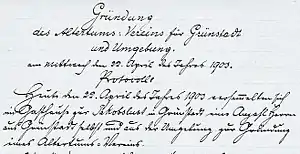 Gründung
des Altertums-Vereins für Grünstadt
und Umgebung.
am mittwoch den 22. April des Jahres 1903.
Protocoll
Heute den 22. April des Jahres 1903 versammelten sich
im Gasthause zur Jakobslust in Grünstadt eine Anzahl Herrn
aus Grünstadt selbst und aus der Umgebung zur Gründung
eines Altertums-Vereins.